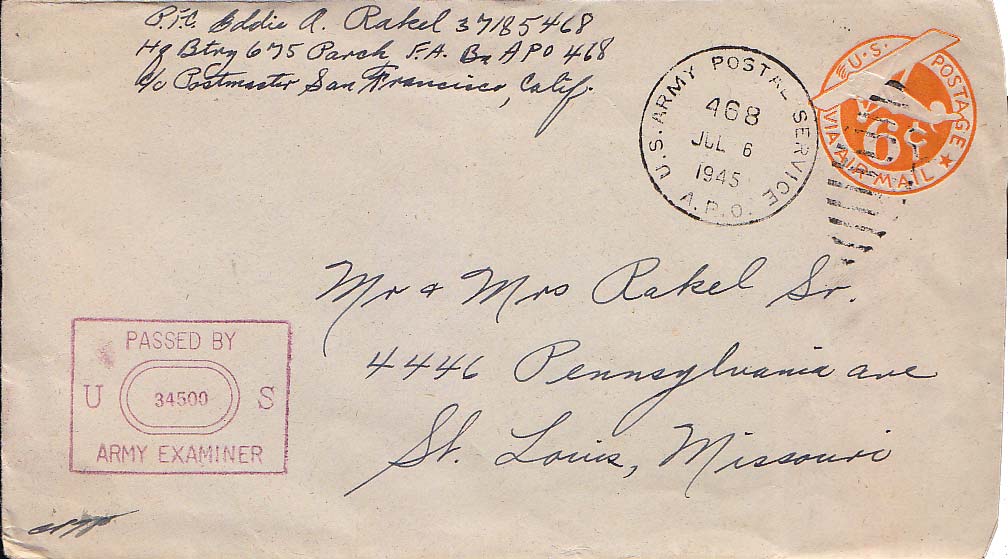 P.F.C. Eddie A. Rakel 37185468
Hq Btry 675 Parch. F.A. Bn APO 468
c/o Postmaster San Francisco, Calif.
U.S. ARMY POSTAL SERVICE
468
JUL 6
1945
A.P.O.
U.S. POSTAGE
6¢
VIA AIR MAIL
Mr & Mrs Rakel Sr.
4446 Pennsylvania ave
St. Louis, Missouri
PASSED BY
U 34500 S
ARMY EXAMINER